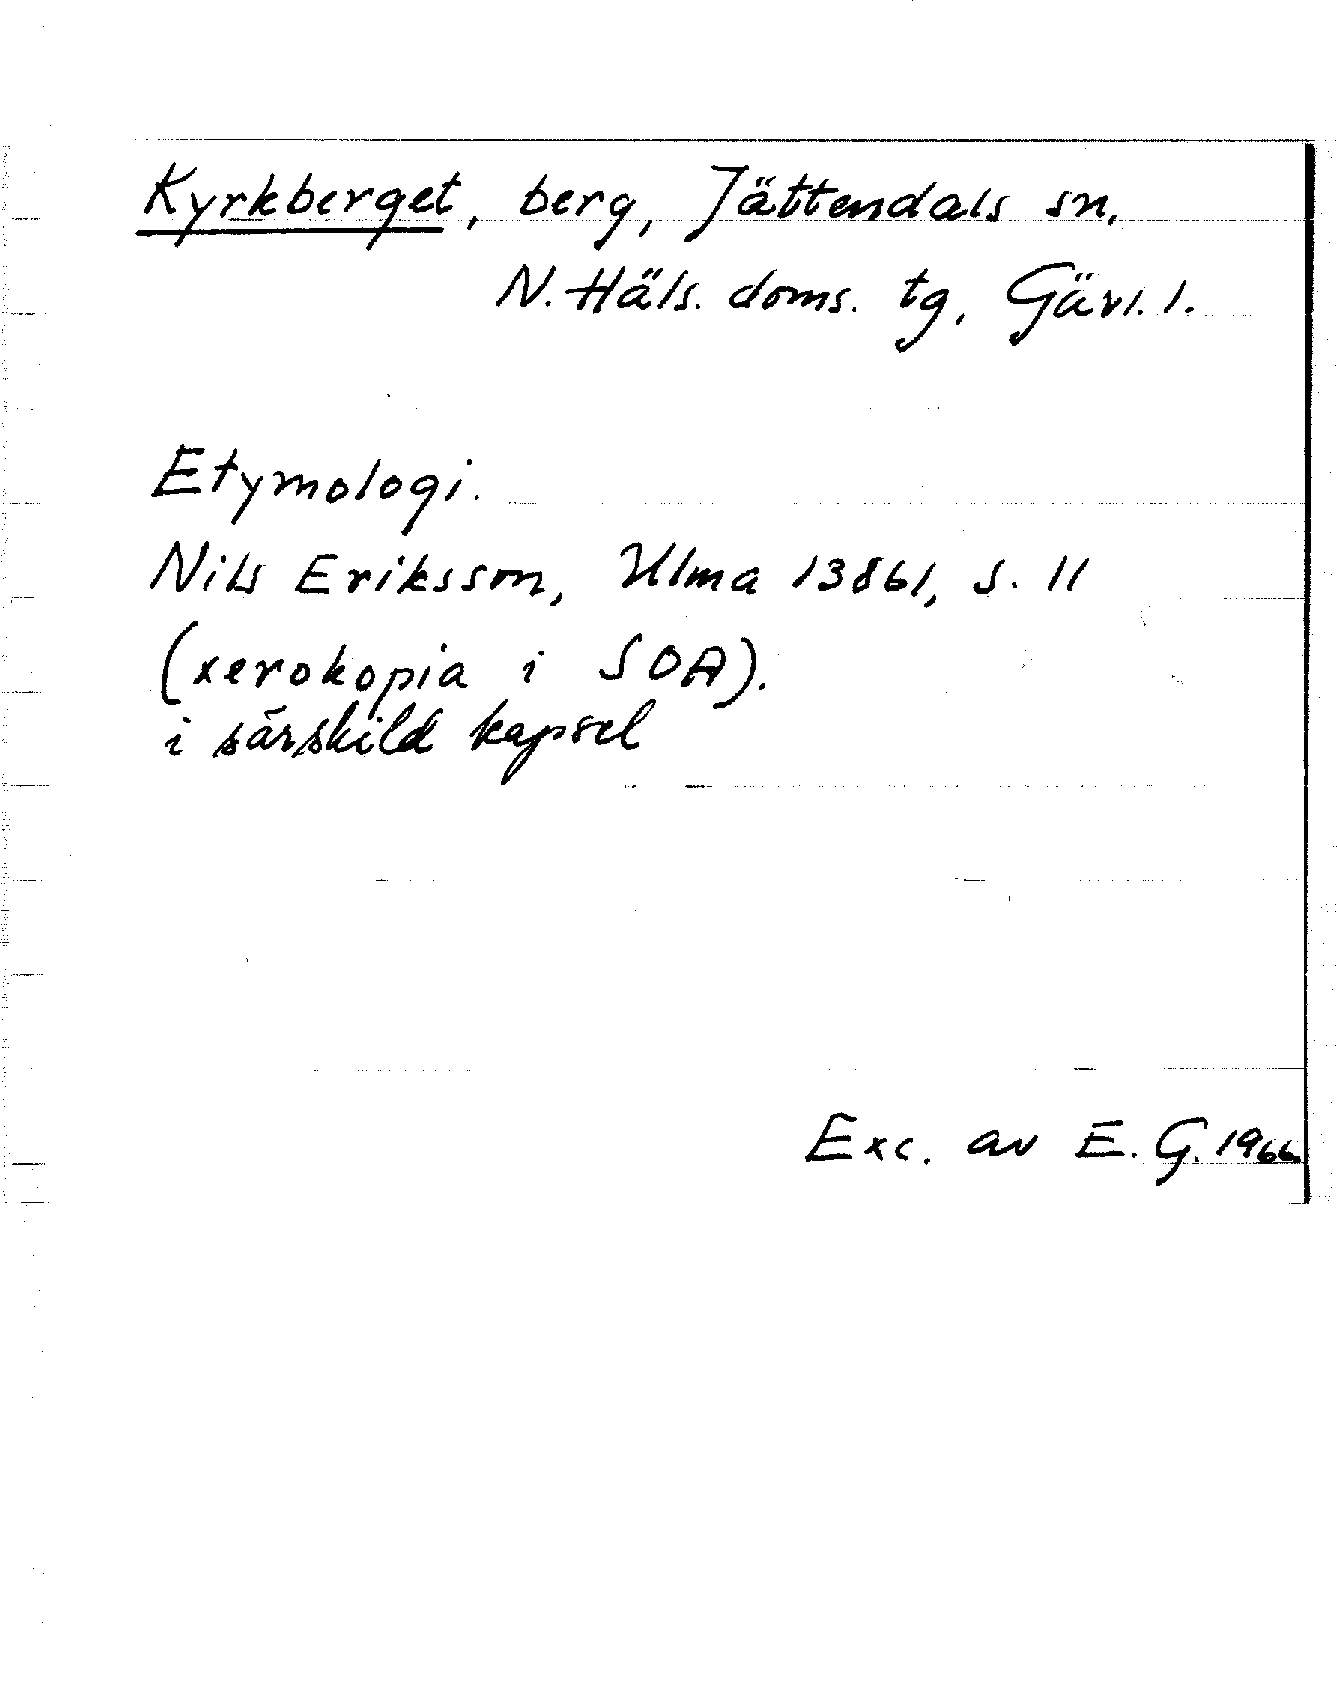 Kyrkberget, berg, Jättendals sn,
N. Häls. doms. tg, Gävl. l.
Etymologi.
Nils Eriksson, Ulma 13861, s. 11
(xerokopia i SOA).
i särskild kapsel
Exc. av E. G. 1966